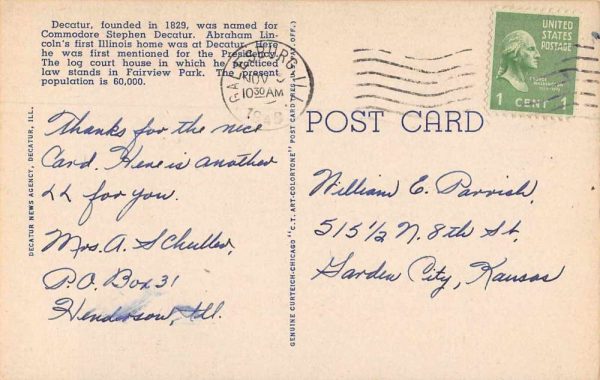 Decatur, founded in 1829, was named for
Commodore Stephen Decatur. Abraham Lin-
coln's first Illinois home was at Decatur. Here
he was first mentioned for the Presidency.
The log court house in which he practiced
law stands in Fairview Park. The present
population is 60,000.
GALESBURG ILL
NOV
10 30 AM
194
UNITED
STATES
POSTAGE
1 CENT 1
POST CARD
DECATUR NEWS AGENCY, DECATUR, ILL.
GENUINE CURTEICH-CHICAGO "C.T. ART-COLORTONE" POST CARD
Thanks for the nice
Card. Here is another
LL for you.
Mrs. A. Schuller,
P.O. Box 31
Henderson, Ill.
William E. Parrish,
515 1/2 N. 8th St,
Garden City, Kansas